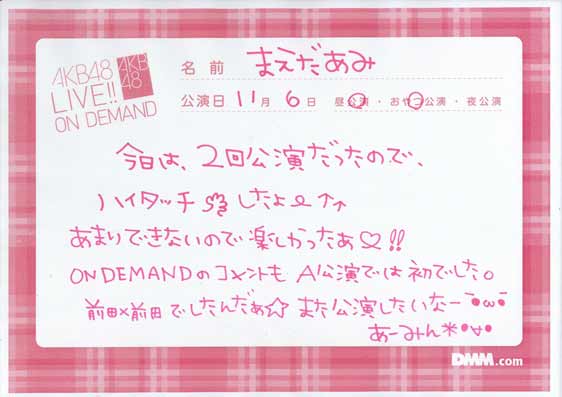 AKB48
LIVE!!
ON DEMAND
AKB
48
名前 まえだあみ
公演日 11月 6日 昼公演・おやつ公演・夜公演
今日は、2回公演だったので、
ハイタッチ したよ ↑↑
あまりできないので楽しかったあ♡!!
ON DEMANDのコメントも A公演では初でした。
前田×前田でしたんだぁ☆ また公演したいなー •ω•
あーみん*•∀•
DMM.com